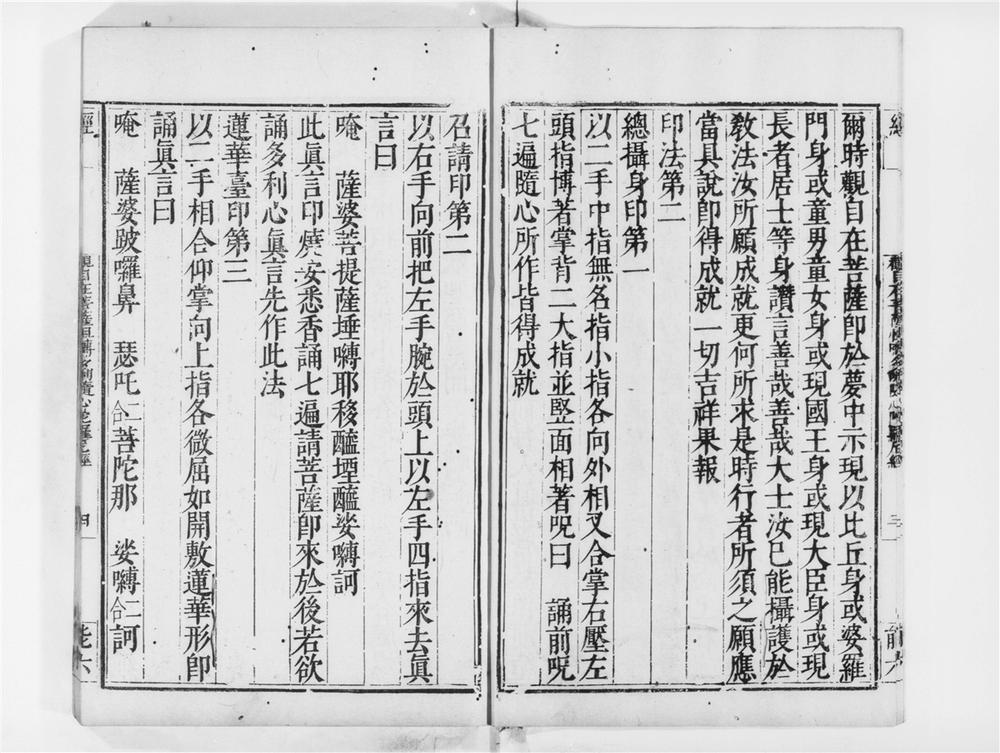 爾時觀自在菩薩卽於夢中示現以比丘身或婆羅
門身或童男童女身或現國王身或現大臣身或現
長者居士等身讚言善哉善哉大士汝已能攝護於
敎法汝所願成就更何所求是時行者所須之願應
當具說卽得成就一切吉祥果報
印法第二
總攝身印第一
以二手中指無名指小指各向外相叉合掌右壓左
頭指博著掌背二大指並竪面相著呪曰 誦前呪
七遍隨心所作皆得成就
召請印第二
以右手向前把左手腕於頭上以左手四指來去眞
言曰
唵 薩婆菩提薩埵嚩耶移醯堙醯娑嚩訶
此眞言印燒安悉香誦七遍請菩薩卽來於後若欲
誦多利心眞言先作此法
蓮華臺印第三
以二手相合仰掌向上指各微屈如開敷蓮華形卽
誦眞言曰
唵 薩婆跛囉鼻 瑟吒二合菩陀那 娑嚩二合訶
經
四
能六